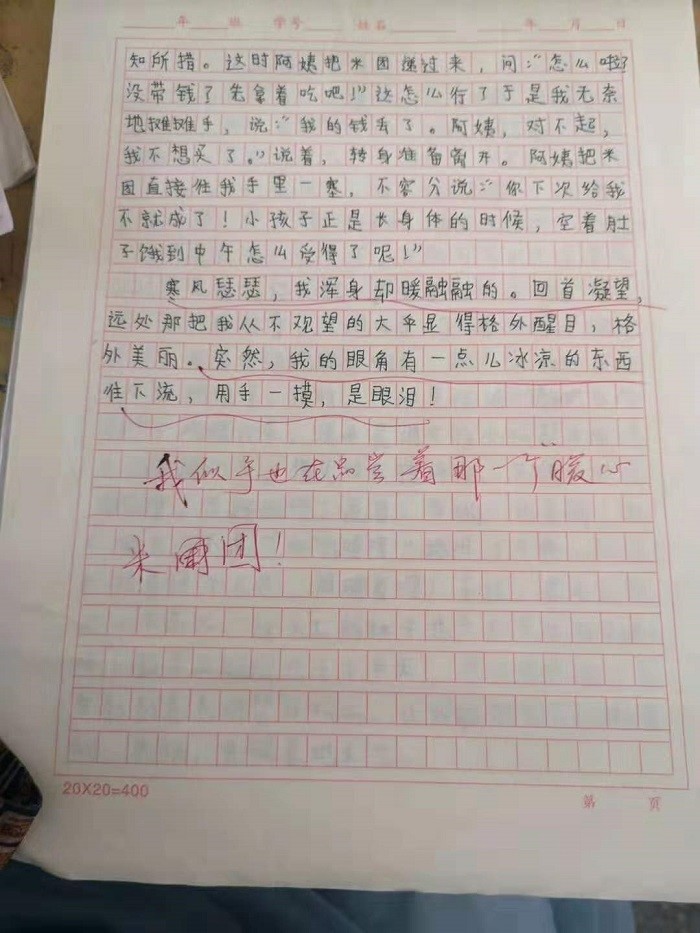 年 班 学号 姓名 年 月 日
知所措。这时阿姨把米团递过来，问：“怎么啦？
没带钱了先拿着吃吧！”这怎么行了于是我无奈
地摊摊手，说：“我的钱丢了。阿姨，对不起，
我不想买了。”说着，转身准备离开。阿姨把米
团直接往我手里一塞，不容分说：“你下次给我
不就成了！小孩子正是长身体的时候，空着肚
子饿到中午怎么受得了呢！”
寒风瑟瑟，我浑身却暖融融的。回首凝望，
远处那把我从不观望的大伞显得格外醒目，格
外美丽。突然，我的眼角有一点儿冰凉的东西
往下流，用手一摸，是眼泪！
我似乎也在品尝着那个暖心
米团！
20X20=400
第 页